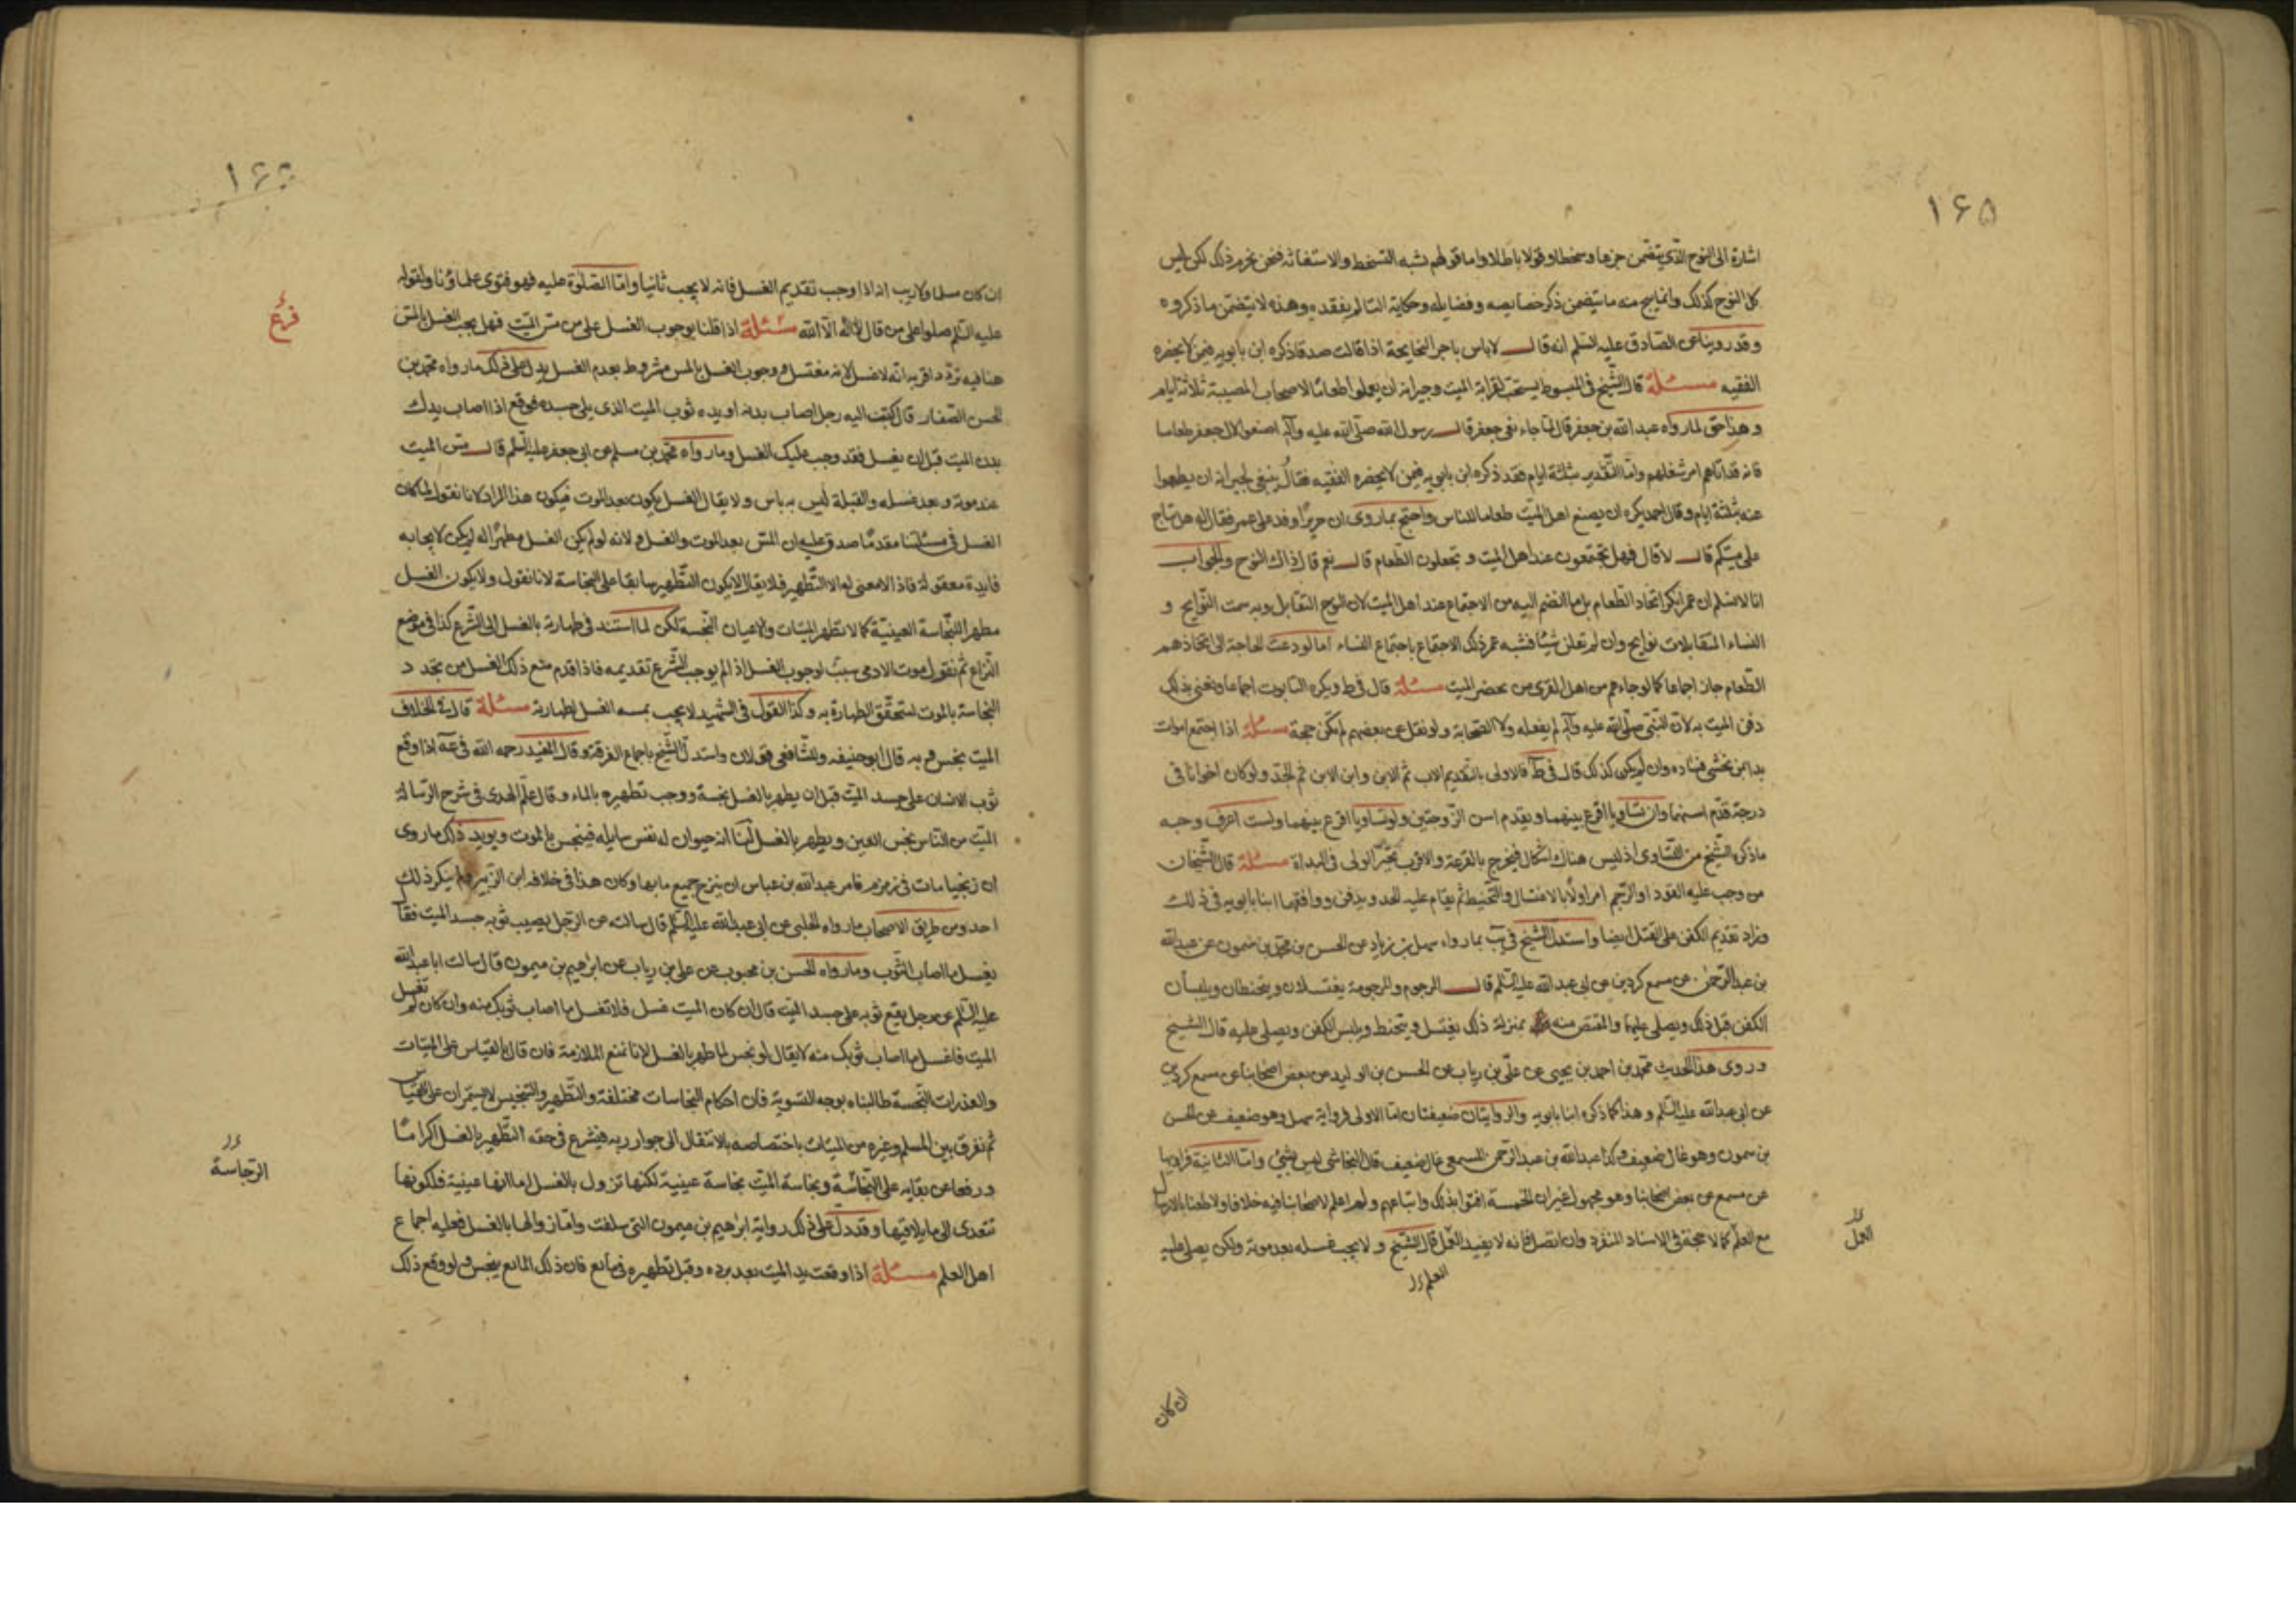 ١٦٥
اشارة الى النوح الذي يتضمن جزعا وسخطا وقولا باطلا واما قولهم نشبه التسخط والاستغاثة فنحن نحرم ذلك لكن ليس
كل النوح كذلك وانما يبيح منه ما يتضمن ذكر خصايصه وفضايله وحكاية التالم بفقده وهذه لا يتضمن ما ذكروه
وقد روينا عن الصادق عليه السلم انه قال لا باس باجر النايحة اذا قالت صدقا ذكره ابن بابويه فيمن لا يحضره
الفقيه مسئلة قال الشيخ في المبسوط يستحب لقرابة الميت وجيرانه ان يعملوا طعاما لاصحاب المصيبة ثلاثة ايام
وهذا حق لما رواه عبد الله بن جعفر قال لما جاء نعي جعفر قال رسول الله صلى الله عليه وآله اصنعوا لال جعفر طعاما
فانه قد اتاهم امر شغلهم واما التقدير بثلثة ايام فقد ذكره ابن بابويه فيمن لا يحضره الفقيه فقال ينبغي لجيرانه ان يطعموا
عنه بثلثة ايام وقال احمد يكره ان يصنع اهل الميت طعاما للناس واحتج بما روى ان جريرا وفد على عمر فقال له هل يناح
على ميتكم قال لا قال فهل تجتمعون عند اهل الميت و تجعلون الطعام قال نعم قال ذاك النوح والجواب
انا لا نسلم ان عمر انكر اتخاد الطعام بل ما انضم اليه من الاجتماع عند اهل الميت لان النوح التقابل وبه سمت النوايح و
النساء المتقابلات نوايح وان لم تعلن شيئا فشبه عمر ذلك الاجتماع باجتماع النساء اما لو دعت الحاجة الى اتخاذهم
الطعام جاز اجماعا كما لو جاءهم من اهل القرى من يحضر الميت مسئلة قال في ط ويكره التابوت اجماعا ونعني بذلك
دفن الميت به لان النبي صلى الله عليه وآله لم يفعله ولا الصحابة ولو نقل عن بعضهم لم يكن حجة مسئلة اذا اجتمع اموات
بدا بمن يخشى فساده وان لم يكن كذلك قال في ط فالاولى بالتقديم الاب ثم الابن وابن الابن ثم الجد ولو كان اخوانا في
درجة قدم اسنهما وان تساويا اقرع بينهما ويقدم اسن الزوجتين ولو تساويا اقرع بينهما ولست اعرف وجه
ما ذكره الشيخ من التساوى اذ ليس هناك اشكال فيخرج بالقرعة والاقرب تخير الولى في البداة مسئلة قال الشيخان
من وجب عليه القود او الرجم امر اولا بالاغتسال والتحنيط ثم يقام عليه الحد ويدفن ووافقهما ابنا بابويه في ذلك
وزاد تقديم الكفن على القتل ايضا واستدل الشيخ في يب بما رواه سهل بن زياد عن الحسن بن محمد بن شمون عن عبد الله
بن عبد الرحمن عن مسمع كردين عن ابي عبد الله عليه السلم قال المرجوم والمرجومة يغتسلان ويتحنطان ويلبسان
الكفن قبل ذلك ويصلى عليهما والمقتص منه بمنزلة ذلك يغتسل ويتحنط ويلبس الكفن ويصلى عليه قال الشيخ
وروى هذا الحديث محمد بن احمد بن يحيى عن علي بن رياب عن الحسن بن الوليد عن بعض اصحابنا عن مسمع كردين
عن ابي عبد الله عليه السلم وهذا كما ذكره ابنا بابويه والروايتان ضعيفتان اما الاولى فرواية سهل وهو ضعيف عن الحسن
بن شمون وهو غال ضعيف وكذا عبد الله بن عبد الرحمن المسمعي غال ضعيف قال النجاشي ليس بشيء واما الثانية فراويها
عن مسمع عن بعض اصحابنا وهو مجهول غير ان الخمسة افتوا بذلك واتباعهم ولم اعلم لاصحابنا فيه خلافا ولا طعنا بالارسال
مع العلم كما لا حجة في الاسناد المنفرد وان اتصل فانه لا يفيد العمل قال الشيخ ولا يجب غسله بعد موته ولكن يصلى عليه
العمل
العلم
ان كان
ان كان مسلما ولا ريب انه اذا وجب تقديم الغسل فانه لا يجب ثانيا واما الصلوة عليه فهو فتوى علماؤنا ولقوله
عليه السلم صلوا على من قال لا اله الا الله مسئلة اذا قلنا بوجوب الغسل على من مس الميت فهل يجب الغسل بالمس
فرع
هنا فيه تردد اقربه انه لا غسل لانه مغتسل ووجوب الغسل بالمس مشروط بعدم الغسل يدل على ذلك ما رواه محمد بن
الحسن الصفار قال كتبت اليه رجل اصاب بدنه او يده ثوب الميت الذي يلي جسده فوقع اذا اصاب يدك
بدن الميت قبل ان يغسل فقد وجب عليك الغسل وما رواه محمد بن مسلم عن ابي جعفر عليه السلم قال مس الميت
عند موته وبعد غسله والقبلة ليس به باس ولا يقال الغسل يكون بعد الموت فيكون هذا المراد لانا نقول لما كان
الغسل في مسئلتنا مقدما صدق عليه ان المس بعد الموت والغسل ولانه لو لم يكن الغسل مطهرا له لم يكن لايجابه
فايدة معقولة فاذا لا معنى له الا التطهير فلا يقال لا يكون التطهير سابقا على النجاسة لانا نقول ولا يكون الغسل
مطهرا للنجاسة العينية كما لا تطهر الميتات والاعيان النجسة لكن لما استند في طهارته بالغسل الى الشرع كذا في موضع
النزاع ثم نقول موت الادمي سبب لوجوب الغسل اذا لم يوجب الشرع تقديمه فاذا قدم منع ذلك الغسل من تجدد
النجاسة بالموت لتحقق الطهارة به وكذا القول في الشهيد لا يجب بمسه الغسل لطهارته مسئلة قال في الخلاف
الميت نجس وبه قال ابو حنيفه وللشافعي قولان واستدل الشيخ باجماع الفرقة وقال المفيد رحمه الله في عه اذا وقع
ثوب الانسان على جسد الميت قبل ان يطهر بالغسل نجسه ووجب تطهيره بالماء وقال علم الهدى في شرح الرسالة
الميت من الناس نجس العين ويطهر بالغسل لنا انه حيوان له نفس سايله فينجس بالموت ويويد ذلك ما روى
ان زنجيا مات في زمزم فامر عبد الله بن عباس ان ينزح جميع مائها وكان هذا في خلافه ابن الزبير ولم ينكر ذلك
احد ومن طريق الاصحاب ما رواه الحلبي عن ابي عبد الله عليه السلم قال سالته عن الرجل يصيب ثوبه جسد الميت فقال
يغسل ما اصاب الثوب وما رواه الحسن بن محبوب عن علي بن رياب عن ابرهيم بن ميمون قال سالت ابا عبد الله
عليه السلم عن رجل يقع ثوبه على جسد الميت قال ان كان الميت غسل فلا تغسل ما اصاب ثوبك منه وان كان لم تغسل
الميت فاغسل ما اصاب ثوبك منه لا يقال لو نجس لما طهر بالغسل لانا نمنع الملازمة فان قال بالقياس على الميتات
والعذرات النجسة طالبناه بوجه التسوية فان احكام النجاسات مختلفة والتطهير والتنجيس لا يستمران على القياس
ثم نفرق بين المسلم وغيره من الميتات باختصاصه بالانتقال الى جوار ربه فيشرع في حقه التطهير بالغسل اكراما
ورفعا عن بقايه على النجاسة ونجاسة الميت نجاسة عينية لكنها تزول بالغسل اما انها عينية فلكونها
الرجاسة
تتعدى الى ما يلاقيها وقد دل على ذلك رواية ابرهيم بن ميمون التي سلفت واما زوالها بالغسل فعليه اجماع
اهل العلم مسئلة اذا وقعت يد الميت بعد برده وقبل تطهيره في مايع فان ذلك المايع ينجس ولو وقع ذلك